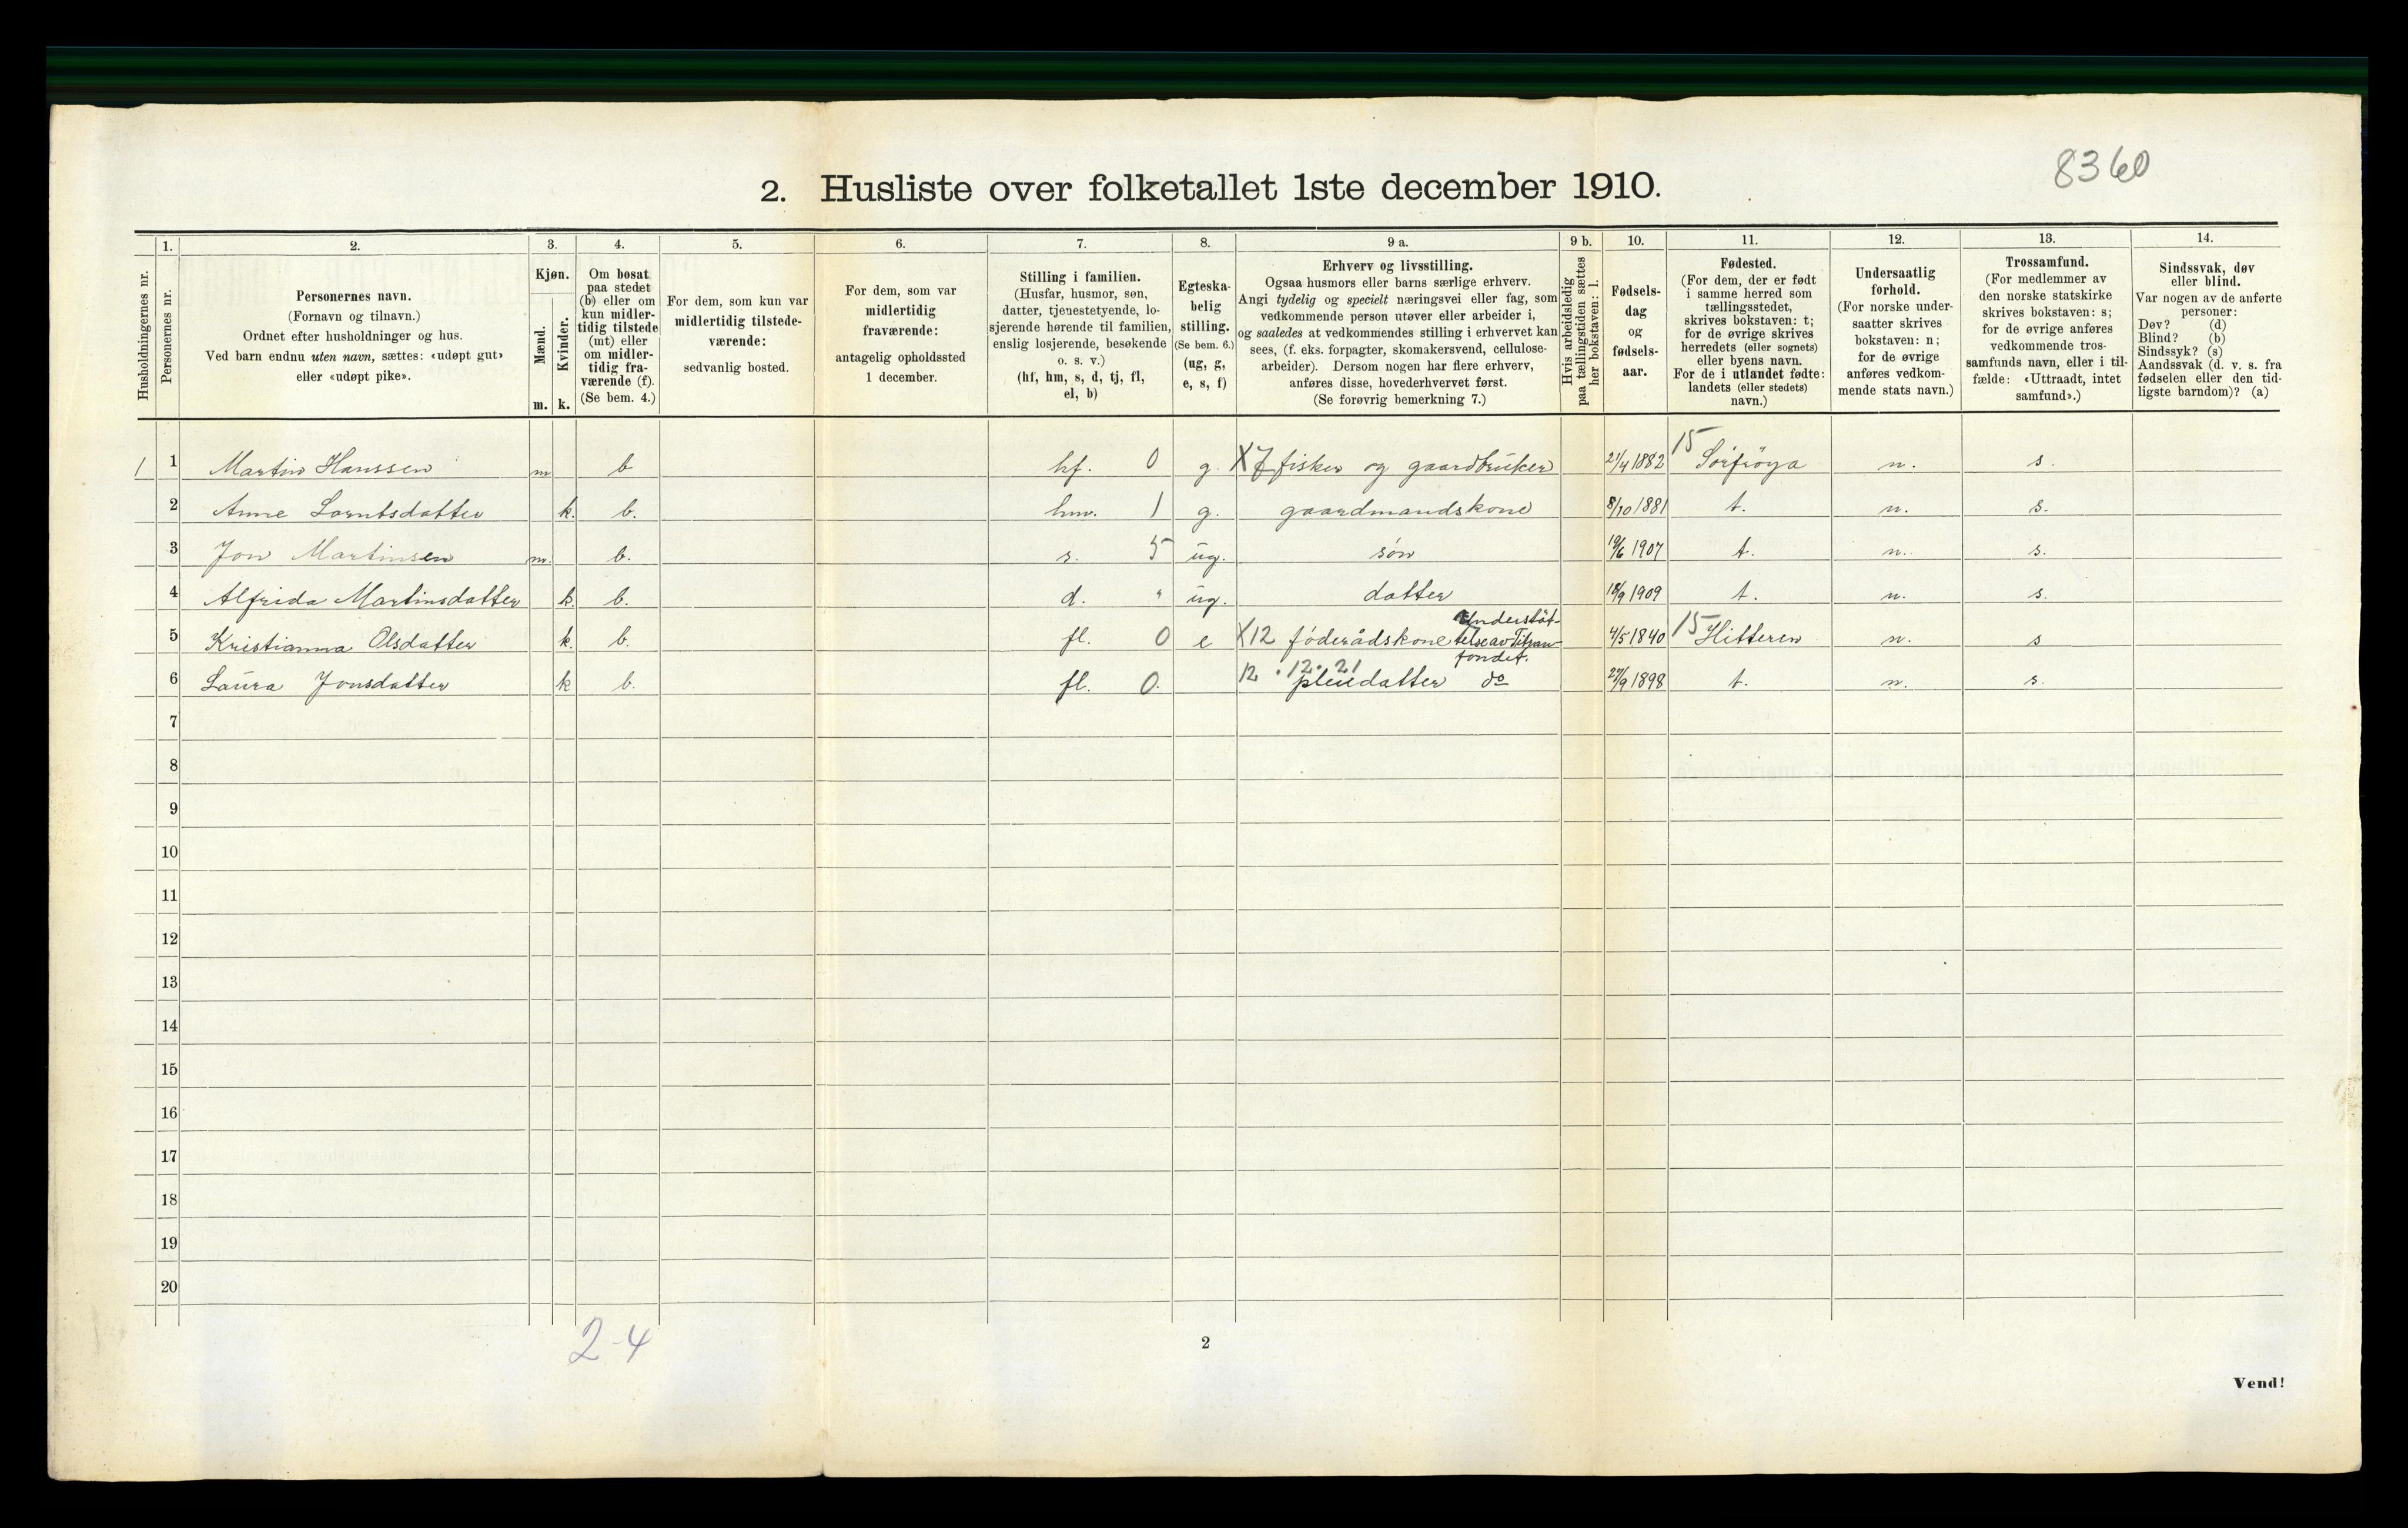 8360
2. Husliste over folketallet 1ste december 1910.
Husholdningernes nr.
1.
Personernes nr.
2.
Personernes navn.
(Fornavn og tilnavn.)
Ordnet efter husholdninger og hus.
Ved barn endnu uten navn, sættes: «udøpt gut»
eller «udøpt pike».
3.
Kjøn.
Mænd.
m.
Kvinder.
k.
4.
Om bosat
paa stedet
(b) eller om
kun midler-
tidig tilstede
(mt) eller
om midler-
tidig fra-
værende (f).
(Se bem. 4.)
5.
For dem, som kun var
midlertidig tilstede-
værende:
sedvanlig bosted.
6.
For dem, som var
midlertidig
fraværende:
antagelig opholdssted
1 december.
7.
Stilling i familien.
(Husfar, husmor, søn,
datter, tjenestetyende, lo-
sjerende hørende til familien,
enslig losjerende, besøkende
o. s. v.)
(hf, hm, s, d, tj, fl,
el, b)
8.
Egteska-
belig
stilling.
(Se bem. 6.)
(ug, g,
e, s, f)
9 a.
Erhverv og livsstilling.
Ogsaa husmors eller barns særlige erhverv.
Angi tydelig og specielt næringsvei eller fag, som
vedkommende person utøver eller arbeider i,
og saaledes at vedkommendes stilling i erhvervet kan
sees, (f. eks. forpagter, skomakersvend, cellulose-
arbeider). Dersom nogen har flere erhverv,
anføres disse, hovederhvervet først.
(Se forøvrig bemerkning 7.)
9 b.
Hvis arbeidsledig
paa tællingstiden sættes
her bokstaven: l.
10.
Fødsels-
dag
og
fødsels-
aar.
11.
Fødested.
(For dem, der er født
i samme herred som
tællingsstedet,
skrives bokstaven: t;
for de øvrige skrives
herredets (eller sognets)
eller byens navn.
For de i utlandet fødte:
landets (eller stedets)
navn.)
12.
Undersaatlig
forhold.
(For norske under-
saatter skrives
bokstaven: n;
for de øvrige
anføres vedkom-
mende stats navn.)
13.
Trossamfund.
(For medlemmer av
den norske statskirke
skrives bokstaven: s;
for de øvrige anføres
vedkommende tros-
samfunds navn, eller i til-
fælde: «Uttraadt, intet
samfund».)
14.
Sindssvak, døv
eller blind.
Var nogen av de anførte
personer:
Døv? (d)
Blind? (b)
Sindssyk? (s)
Aandssvak (d. v. s. fra
fødselen eller den tid-
ligste barndom)? (a)
1 1 Martin Hanssen m b hf. 0 g. X7 fisker og gaardbruker 21/4 1882 15 Sørfrøya n. s.
2 Anne Lorntsdatter k. b. hm. 1 g. gaardmandskone 8/10 1881 t. n. s.
3 Jon Martinsen m. b. s. 5 ug. søn 19/6 1907 t. n. s.
4 Alfrida Martinsdatter k. b. d. " ug. datter 18/9 1909 t. n. s.
5 Kristianna Olsdatter k. b. fl. 0 e X12 føderådskone Understøt-
telse av Titran-
fondet. 4/5 1840 15 Hitteren n. s
6 Laura Jonsdatter k b. fl. 0. 12 · 12 · 21 pleiedatter do 27/9 1898 t. n. s.
7
8
9
10
11
12
13
14
15
16
17
18
19
20
2-4
2
Vend!